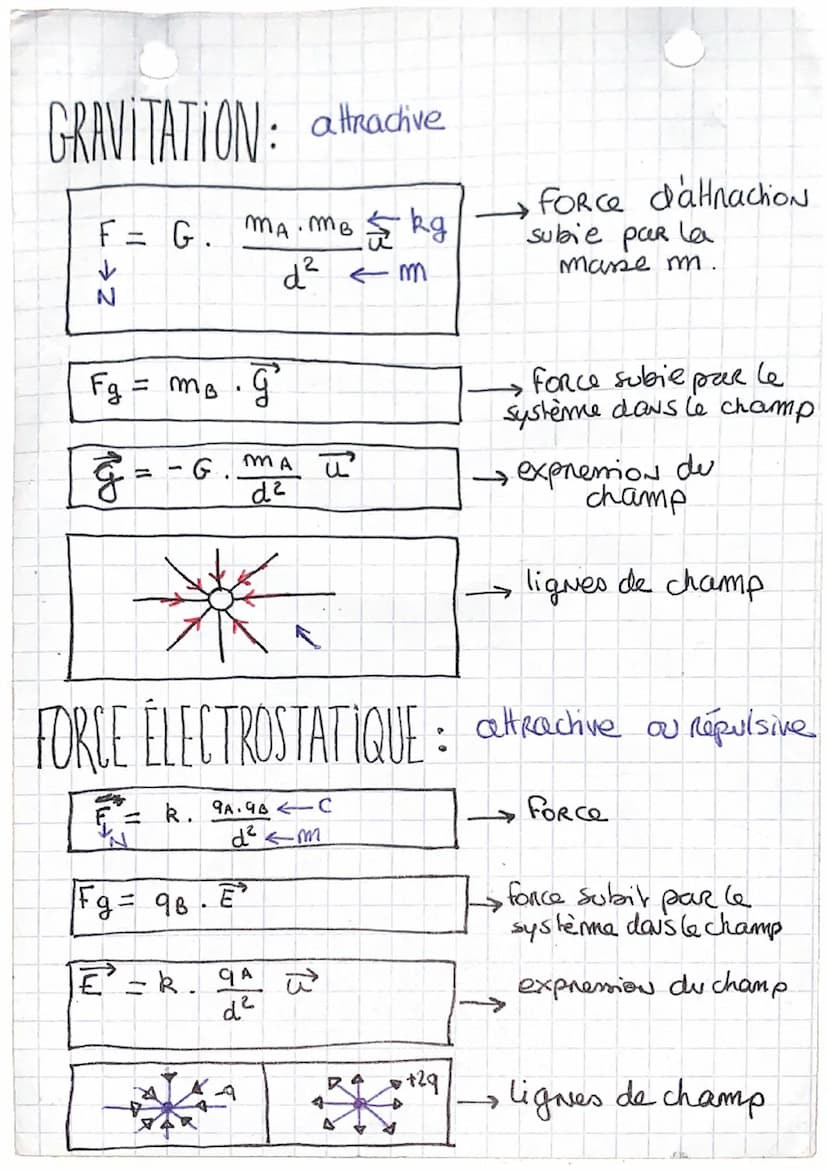 GRAVITATION : attractive
F = G . mA . mB / d² u⃗ ← kg
← m
↓
N
→ force d'attraction
subie par la
masse m.
Fg = mB . g⃗
→ force subie par le
système dans le champ
g⃗ = - G . mA / d² u⃗
→ expression du
champ
→ lignes de champ
FORCE ÉLECTROSTATIQUE : attractive ou répulsive
F = k . qA . qB / d² ← C
↓ N ← m
→ force
Fg = qB . E⃗
→ force subit par le
système dans le champ
E⃗ = k . qA / d² u⃗
→ expression du champ
-q
+2q
→ lignes de champ